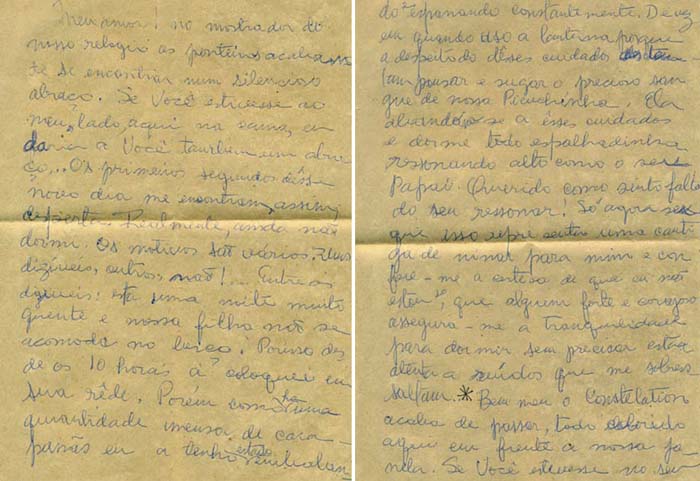 Meu amor! No mostrador do
nosso relogio os ponteiros acabam
de se encontrar num silencioso
abraço. Se Você estivesse ao
meu lado, aqui na cama, eu
daria a Você tambem um abra-
ço... Os primeiros segundos dêsse
novo dia me encontram, assim,
desperta. Realmente, ainda não
dormi. Os motivos são vários. Uns
dizíveis, outros, não!... Entre os
dizíveis: está uma noite muito
quente e nossa filha não se
acomoda no berço. Por isso des
de as 10 horas a coloquei em
sua rêde. Porém como ha uma
quantidade imensa de cara-
panãs eu a tenho estado
do espanando constantemente. De vez
em quando uso a lanterna porque
a despeito dêsses cuidados
tam pousar e sugar o precioso san
gue de nossa Picuchinha. Ela
abandona-se a êsses cuidados
e dorme toda espalhadinha
ressonando alto como o seu
Papai. Querido como sinto falta
do seu ressonar! Só agora sei
que isso representa uma canti
ga de ninar para mim e con
fere-me a certeza de que eu não
estou só, que alguem forte e corajoso
assegura-me a tranquilidade
para dormir sem precisar estar
atenta a ruídos que me sobres
saltam.* Bem meu o Constelation
acaba de passar, todo
aqui em frente a nossa ja
nela. Se Você estivesse no seu